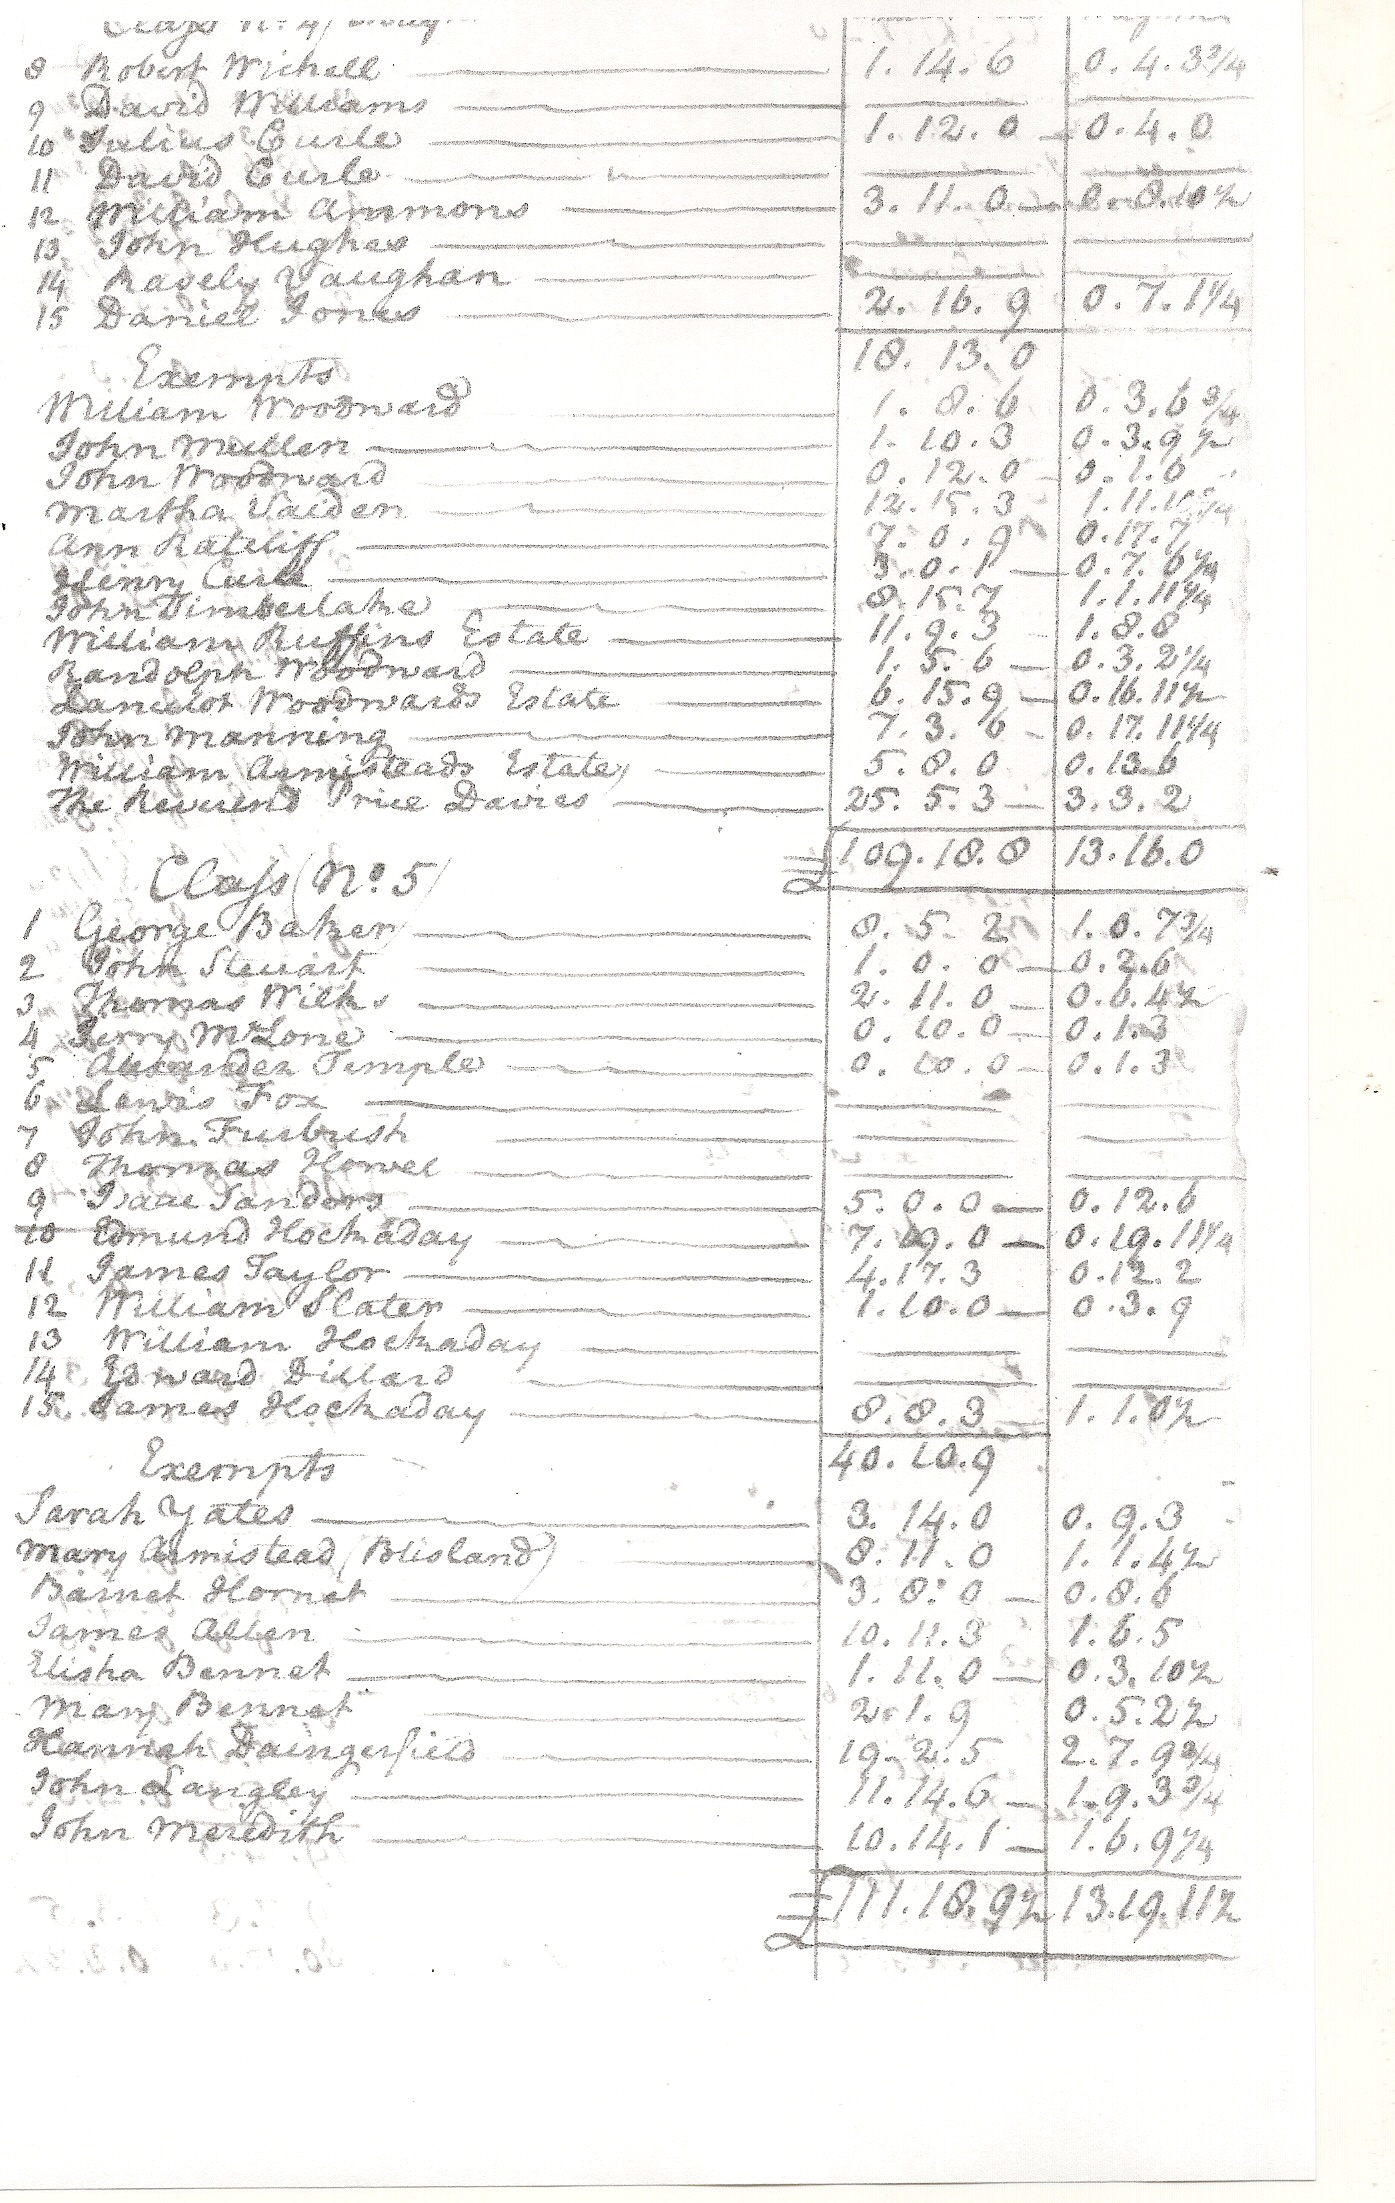 Class No. 4)
8 Robert Wichell 1. 14. 6 0. 4. 3 3/4
9 David Williams
10 Julius Curle 1. 12. 0 0. 4. 0
11 David Curle
12 William Ammons 3. 11. 0 0. 8. 10 1/2
13 John Hughes
14 Vaughan
15 Daniel Jones 2. 16. 9 0. 7. 1 1/4
18. 13. 0
Exempts
William Woodward 1. 8. 6 0. 3. 6 3/4
John Mullen 1. 10. 3 0. 3. 9 1/2
John Woodward 0. 12. 0 0. 1. 6
Martha Vaiden 12. 15. 3 1. 11.
Ann Ratcliff 7. 0. 9 0. 17. 7
Henry Curle 3. 0. 1 0. 7. 6 1/4
John Timberlake 8. 15. 7 1. 1. 11 1/4
William Ruffins Estate 11. 9. 3 1. 8. 8
Randolph Woodward 1. 5. 6 0. 3. 2 1/4
Lancelot Woodwards Estate 6. 15. 9 0. 16. 11 1/2
John Manning 7. 3. 6 0. 17. 11 1/4
William Armisteads Estate 5. 8. 0 0. 13. 6
The Reverend Price Davies 25. 5. 3 3. 3. 2
£ 109. 18. 8 13. 16. 0
Class (No. 5)
1 George Baker 8. 5. 2 1. 0. 7 3/4
2 John Stewart 1. 0. 0 0. 2. 6
3 Thomas Wilks 2. 11. 0 0. 6. 4 1/2
4 Jerry McLone 0. 10. 0 0. 1. 3
5 Alexander Temple 0. 10. 0 0. 1. 3
6 Lewis Fox
7 John Furbush
8 Thomas Howel
9 Isaac Sanders 5. 0. 0 0. 12. 6
10 Edmund Hockaday 7. 19. 0 0. 19. 11 1/4
11 James Taylor 4. 17. 3 0. 12. 2
12 William Slater 1. 10. 0 0. 3. 9
13 William Hockaday
14 Edward Dillard
15 James Hockaday 8. 8. 3 1. 1. 0 1/2
40. 10. 9
Exempts
Sarah Yates 3. 14. 0 0. 9. 3
Mary Armistead (Blisland) 8. 11. 0 1. 1. 4 1/2
Barnet Hornet 3. 8. 0 0. 8. 6
James Allen 10. 11. 3 1. 6. 5
Elisha Bennet 1. 11. 0 0. 3. 10 1/2
Mary Bennet 2. 1. 9 0. 5. 2 1/2
Hannah Daingerfield 19. 2. 5 2. 7. 9 3/4
John Langley 11. 14. 6 1. 9. 3 3/4
John Meredith 10. 14. 1 1. 6. 9 1/4
£ 111. 18. 9 1/2 13. 19. 11 1/2